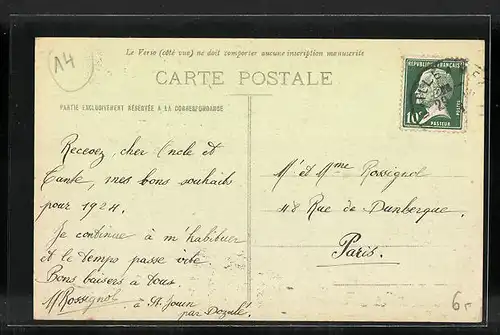 14
Le Verso (côté vue) ne doit comporter aucune inscription manuscrite
CARTE POSTALE
PARTIE EXCLUSIVEMENT RÉSERVÉE A LA CORRESPONDANCE
REPUBLIQUE FRANÇAISE
10c
POSTES
PASTEUR
Recevez, cher Oncle et
Tante, mes bons souhaits
pour 1924.
Je continue à m'habituer
et le temps passe vite.
Bons baisers à tous.
M Rossignol
à St. Jouin
par Dozulé
Mr et Mme Rossignol
48 Rue de Dunkerque.
Paris.
6